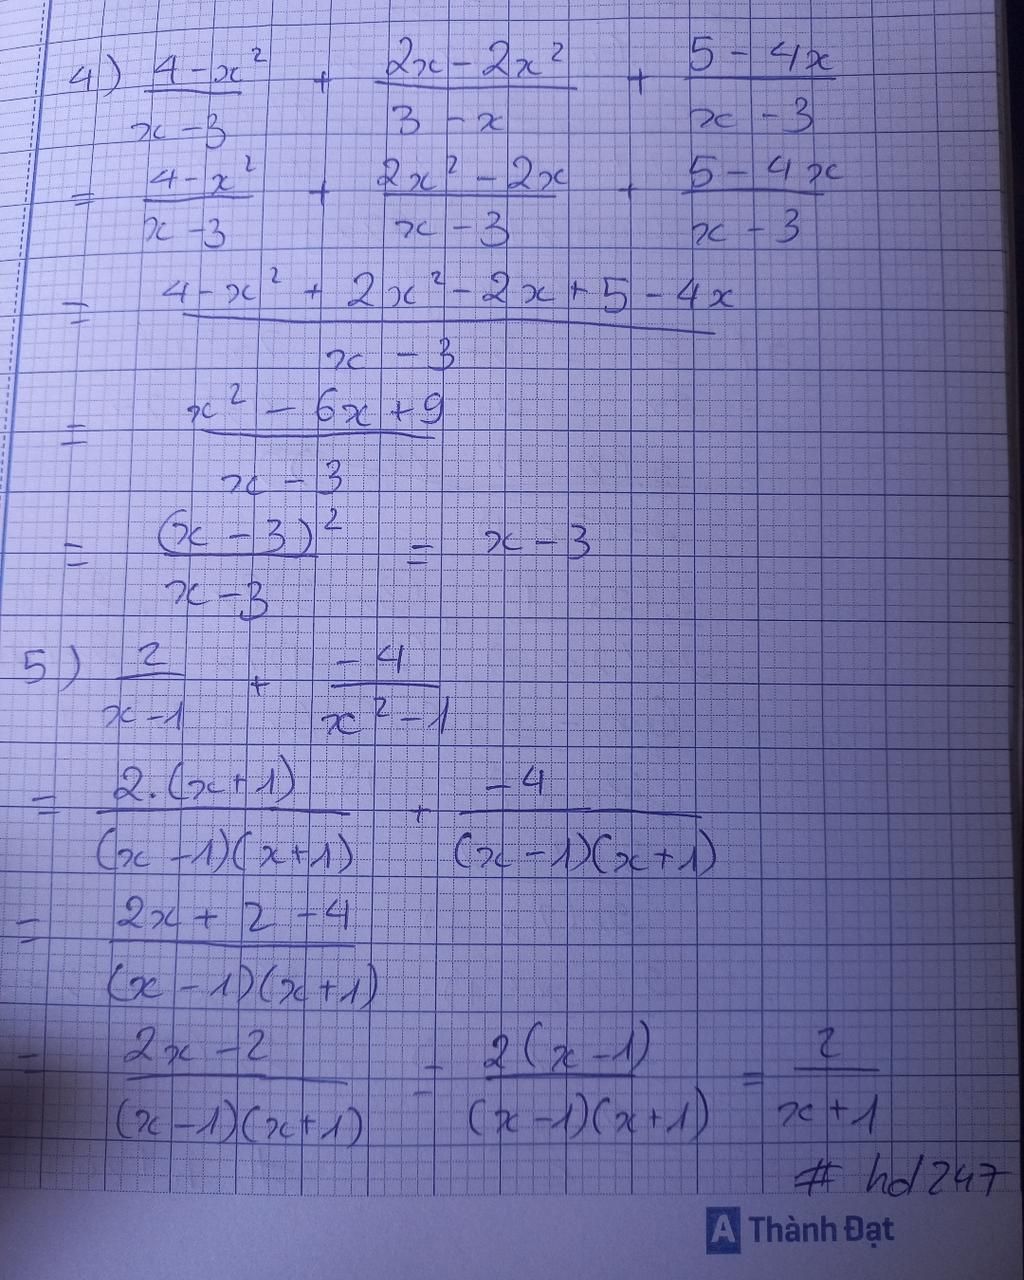 4) (4-x²)/(x-3) + (2x-2x²)/(3-x) + (5-4x)/(x-3)
= (4-x²)/(x-3) + (2x²-2x)/(x-3) + (5-4x)/(x-3)
= (4-x²+2x²-2x+5-4x)/(x-3)
= (x²-6x+9)/(x-3)
= (x-3)²/(x-3) = x-3
5) 2/(x-1) + (-4)/(x²-1)
= 2.(x+1)/((x-1)(x+1)) + (-4)/((x-1)(x+1))
= (2x+2-4)/((x-1)(x+1))
= (2x-2)/((x-1)(x+1)) = 2(x-1)/((x-1)(x+1)) = 2/(x+1)
# hd247
A Thành Đạt